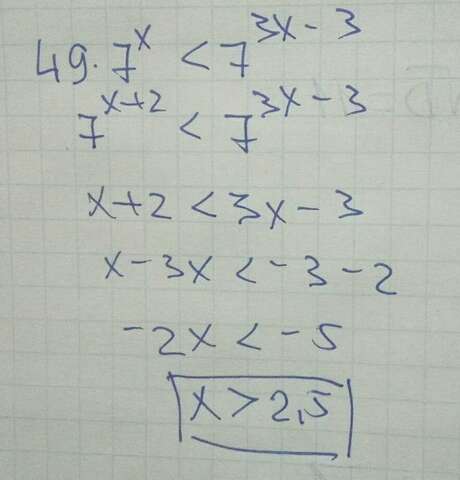 49·7^x < 7^(3x-3)
7^(x+2) < 7^(3x-3)
x+2 < 3x-3
x-3x < -3-2
-2x < -5
x > 2,5